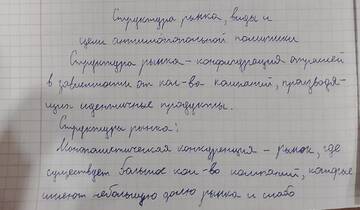 Структура рынка, виды и
цели антимонопольной политики
Структура рынка - конфигурация отраслей
в зависимости от кол-во компаний, производя-
щих идентичные продукты.
Структура рынка:
Монополистическая конкуренция - рынок, где
существует большое кол-во компаний, которые
имеют небольшую долю рынка и слабо